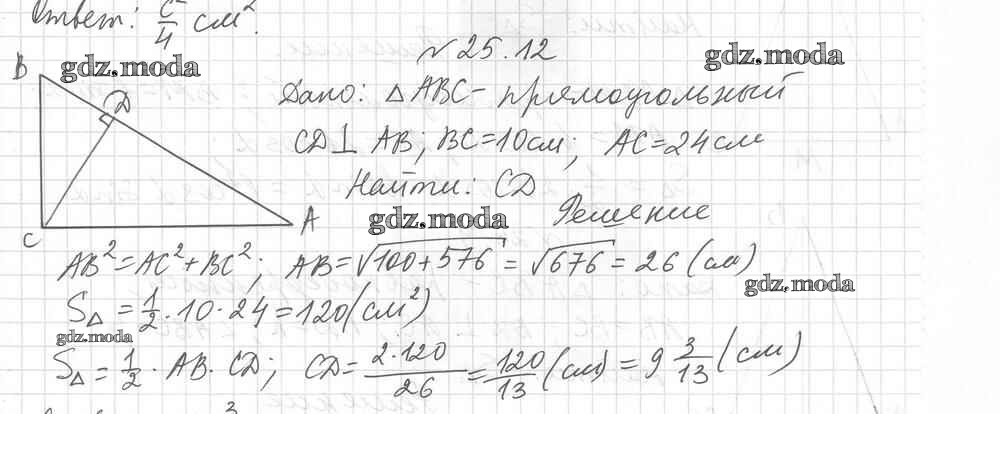 Ответ: c²/4 см².
№25.12
B
gdz.moda
gdz.moda
D
Дано: △ABC - прямоугольный
CD⊥AB; BC=10см; AC=24см
Найти: CD
A
C
gdz.moda
Решение
AB²=AC²+BC²; AB=√(100+576)=√676=26(см)
gdz.moda
S△ = 1/2·10·24=120(см²)
gdz.moda
S△ = 1/2·AB·CD; CD= 2·120/26 = 120/13(см)=9 3/13(см)
3